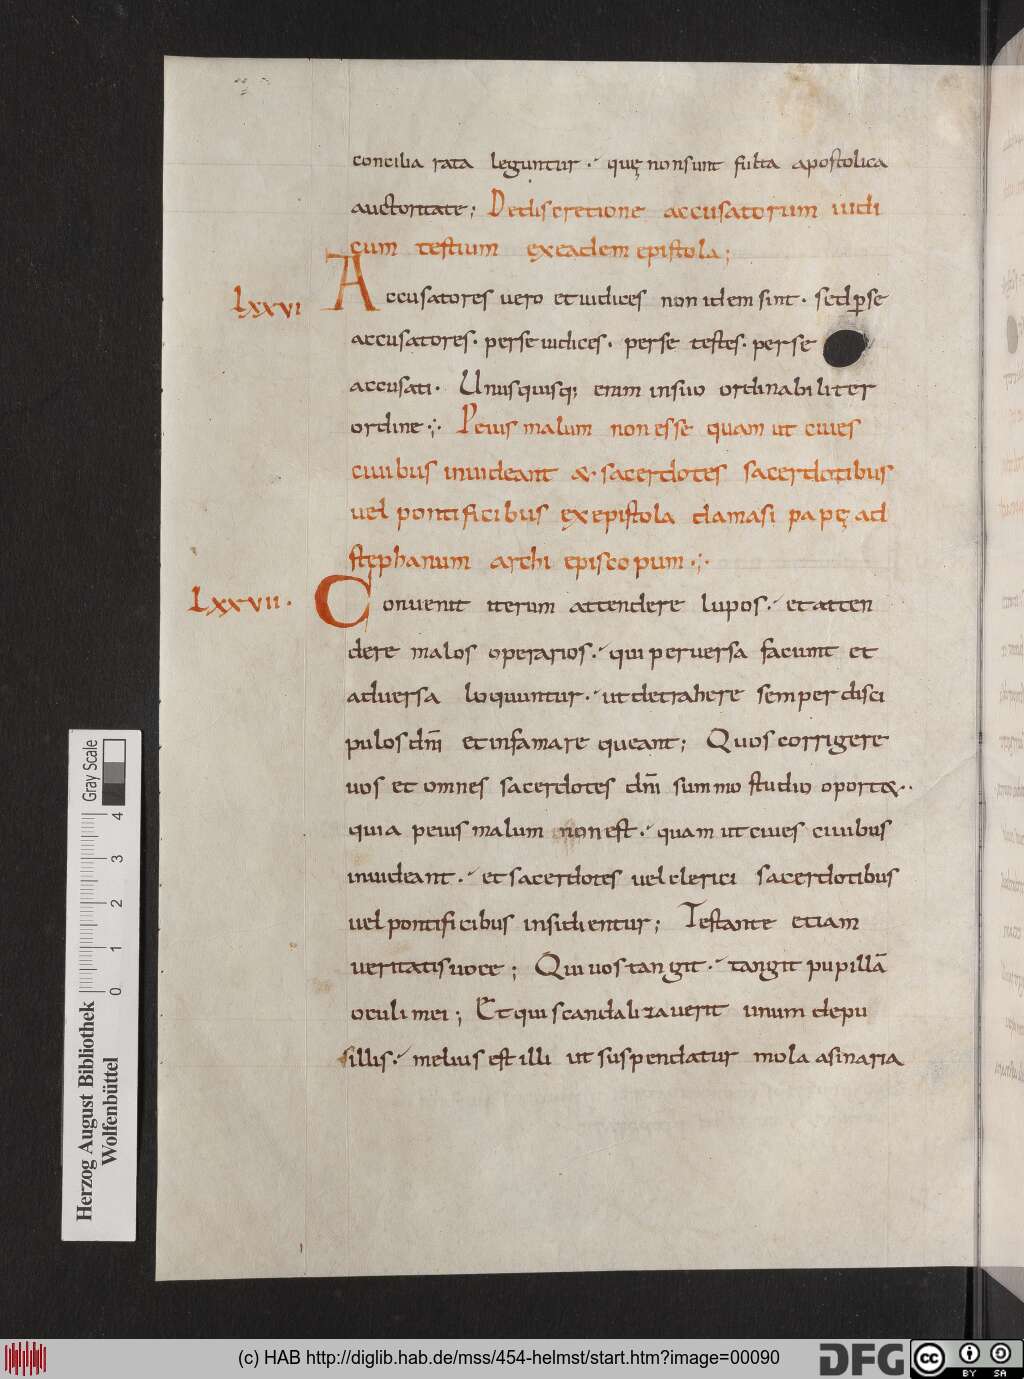 concilia rata leguntur · quę non sunt fulta apostolica
auctoritate; De discretione accusatorum iudi
cum testium ex eadem epistola;
lxxvi Accusatores vero et iudices non idem sint · sed ꝑ se
accusatores · per se iudices · per se testes · per se
accusati · Unusquisq; enim in suo ordinabiliter
ordine ·:· Peius malum non esse quam ut cives
civibus invideant & sacerdotes sacerdotibus
vel pontificibus ex epistola damasi papę ad
stephanum archi episcopum ·:·
Lxxvii · Convenit iterum attendere lupos · et atten
dere malos operarios · qui perversa faciunt et
adversa loquuntur · ut detrahere semper disci
pulos dn̄i et infamare queant; Quos corrigere
vos et omnes sacerdotes dn̄i summo studio oport& ··
quia peius malum non est · quam ut cives civibus
invideant · et sacerdotes vel clerici sacerdotibus
vel pontificibus insidientur; Testante etiam
veritatis voce; Qui vos tangit · tangit pupillā
oculi mei; Et qui scandalizaverit unum de pu
sillis · melius est illi ut suspendatur mola asinaria
Herzog August Bibliothek
Wolfenbüttel
0 1 2 3 4
Gray Scale
(c) HAB http://diglib.hab.de/mss/454-helmst/start.htm?image=00090
DFG
cc
BY SA